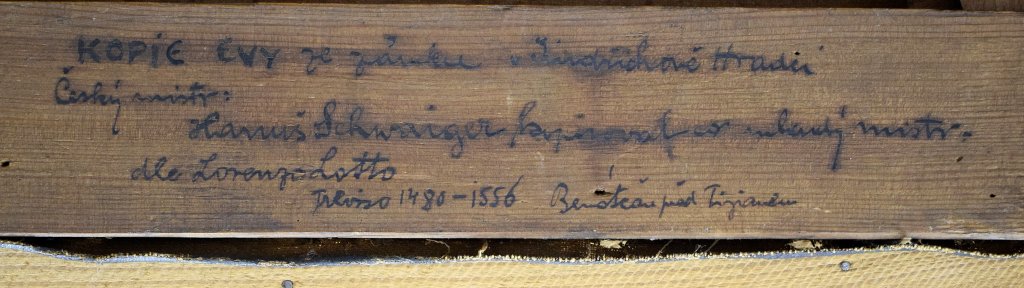 KOPIE EVY ze zámku v Jindřichově Hradci
Český mistr:
Hanuš Schwaiger kopíroval co mladý mistr.
dle Lorenzo Lotto
Treviso 1480-1556 Benátčan před Tizianem